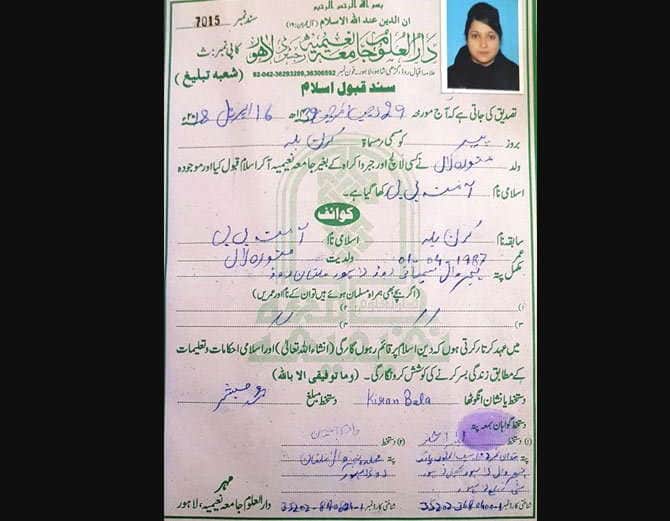 بسم اللہ الرحمن الرحیم
ان الدین عند اللہ الاسلام
سند نمبر 7015
دارالعلوم جامعہ نعیمیہ لاہور
کاپی نمبر: ث
علامہ اقبال روڈ، گڑھی شاہو، لاہور فون نمبر 92-042-36293289,36306592
(شعبہ تبلیغ)
سند قبول اسلام
تصدیق کی جاتی ہے کہ آج مورخہ 29 رجب 16 اپریل 2018ء
بروز پیر کو مسمی / مسماۃ کرن بالا
ولد منوہر لال نے کسی لالچ اور جبر و اکراہ کے بغیر جامعہ نعیمیہ آ کر اسلام قبول کیا اور موجودہ
اسلامی نام آمنہ بی بی رکھا گیا ہے۔
کوائف
سابقہ نام کرن بالا اسلامی نام آمنہ بی بی
عمر 01-04-1987 ولدیت منوہر لال
مکمل پتہ ملتان روڈ
(اگر بچے بھی ہمراہ مسلمان ہوئے ہیں تو ان کے نام اور عمریں)
(۱ (۲
(۳ (۴
میں عہد کرتا / کرتی ہوں کہ دین اسلام پر قائم رہوں گا / گی (انشاء اللہ تعالیٰ) اور اسلامی احکامات و تعلیمات
کے مطابق زندگی بسر کرنے کی کوشش کروں گا / گی۔ (وما توفیقی الا باللہ)
دستخط یا نشان انگوٹھا Kiran Bala دستخط مبلغ
دستخط گواہان بمعہ پتہ
(۱) دستخط (۲) دستخط
پتہ پتہ
شناختی کارڈ نمبر شناختی کارڈ نمبر
مہر
دارالعلوم جامعہ نعیمیہ، لاہور